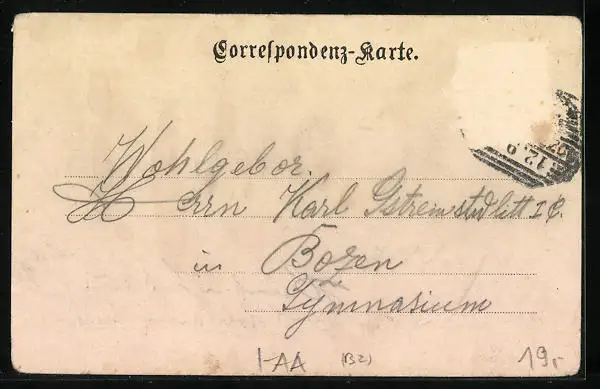 Correſpondenz-Karte.
12.9
Wohlgebor.
Herrn Karl Gstrein stud litt I C.
in Bozen
Gymnasium
I-AA (BZ) 19,-